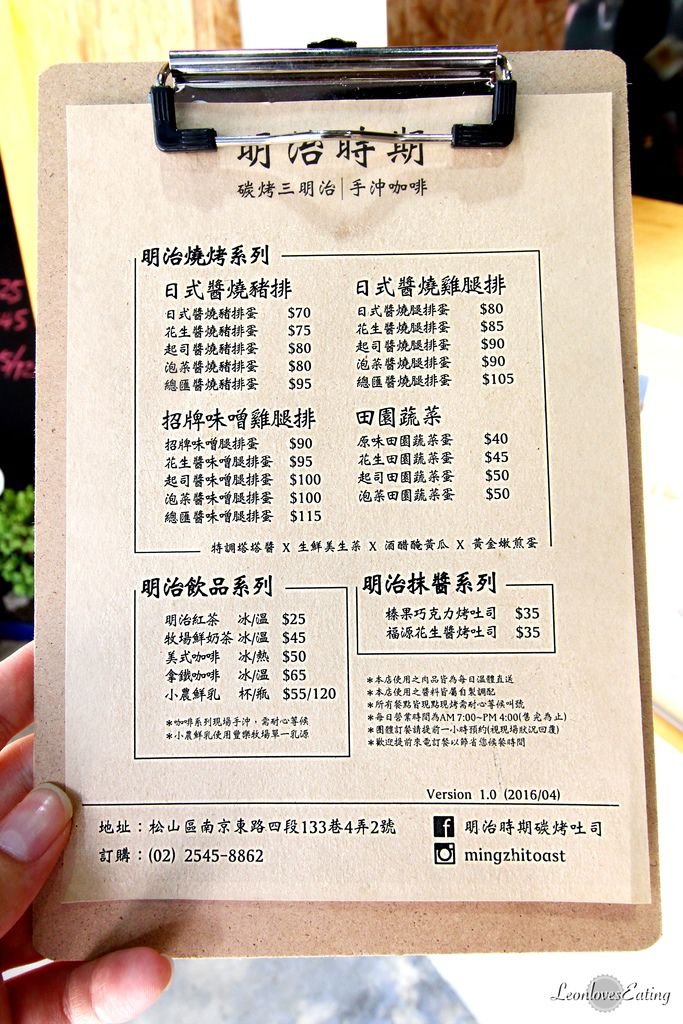 明治時期
碳烤三明治|手沖咖啡
明治燒烤系列
日式醬燒豬排
日式醬燒豬排蛋 $70
花生醬燒豬排蛋 $75
起司醬燒豬排蛋 $80
泡菜醬燒豬排蛋 $80
總匯醬燒豬排蛋 $95
日式醬燒雞腿排
日式醬燒腿排蛋 $80
花生醬燒腿排蛋 $85
起司醬燒腿排蛋 $90
泡菜醬燒腿排蛋 $90
總匯醬燒腿排蛋 $105
招牌味噌雞腿排
招牌味噌腿排蛋 $90
花生醬味噌腿排蛋 $95
起司醬味噌腿排蛋 $100
泡菜醬味噌腿排蛋 $100
總匯醬味噌腿排蛋 $115
田園蔬菜
原味田園蔬菜蛋 $40
花生田園蔬菜蛋 $45
起司田園蔬菜蛋 $50
泡菜田園蔬菜蛋 $50
特調塔塔醬 X 生鮮美生菜 X 酒醋醃黃瓜 X 黃金嫩煎蛋
明治飲品系列
明治紅茶 冰/溫 $25
牧場鮮奶茶 冰/溫 $45
美式咖啡 冰/熱 $50
拿鐵咖啡 冰/溫 $65
小農鮮乳 杯/瓶 $55/120
*咖啡系列現場手沖，需耐心等候
*小農鮮乳使用豐樂牧場單一乳源
明治抹醬系列
榛果巧克力烤吐司 $35
福源花生醬烤吐司 $35
*本店使用之肉品皆為每日溫體直送
*本店使用之醬料皆屬自製調配
*所有餐點皆現點現烤需耐心等候叫號
*每日營業時間為AM 7:00~PM 4:00(售完為止)
*團體訂餐請提前一小時預約(視現場狀況回覆)
*歡迎提前來電訂餐以節省您候餐時間
Version 1.0 (2016/04)
地址：松山區南京東路四段133巷4弄2號
訂購：(02) 2545-8862
明治時期碳烤吐司
mingzhitoast
25
45
LeonlovesEating